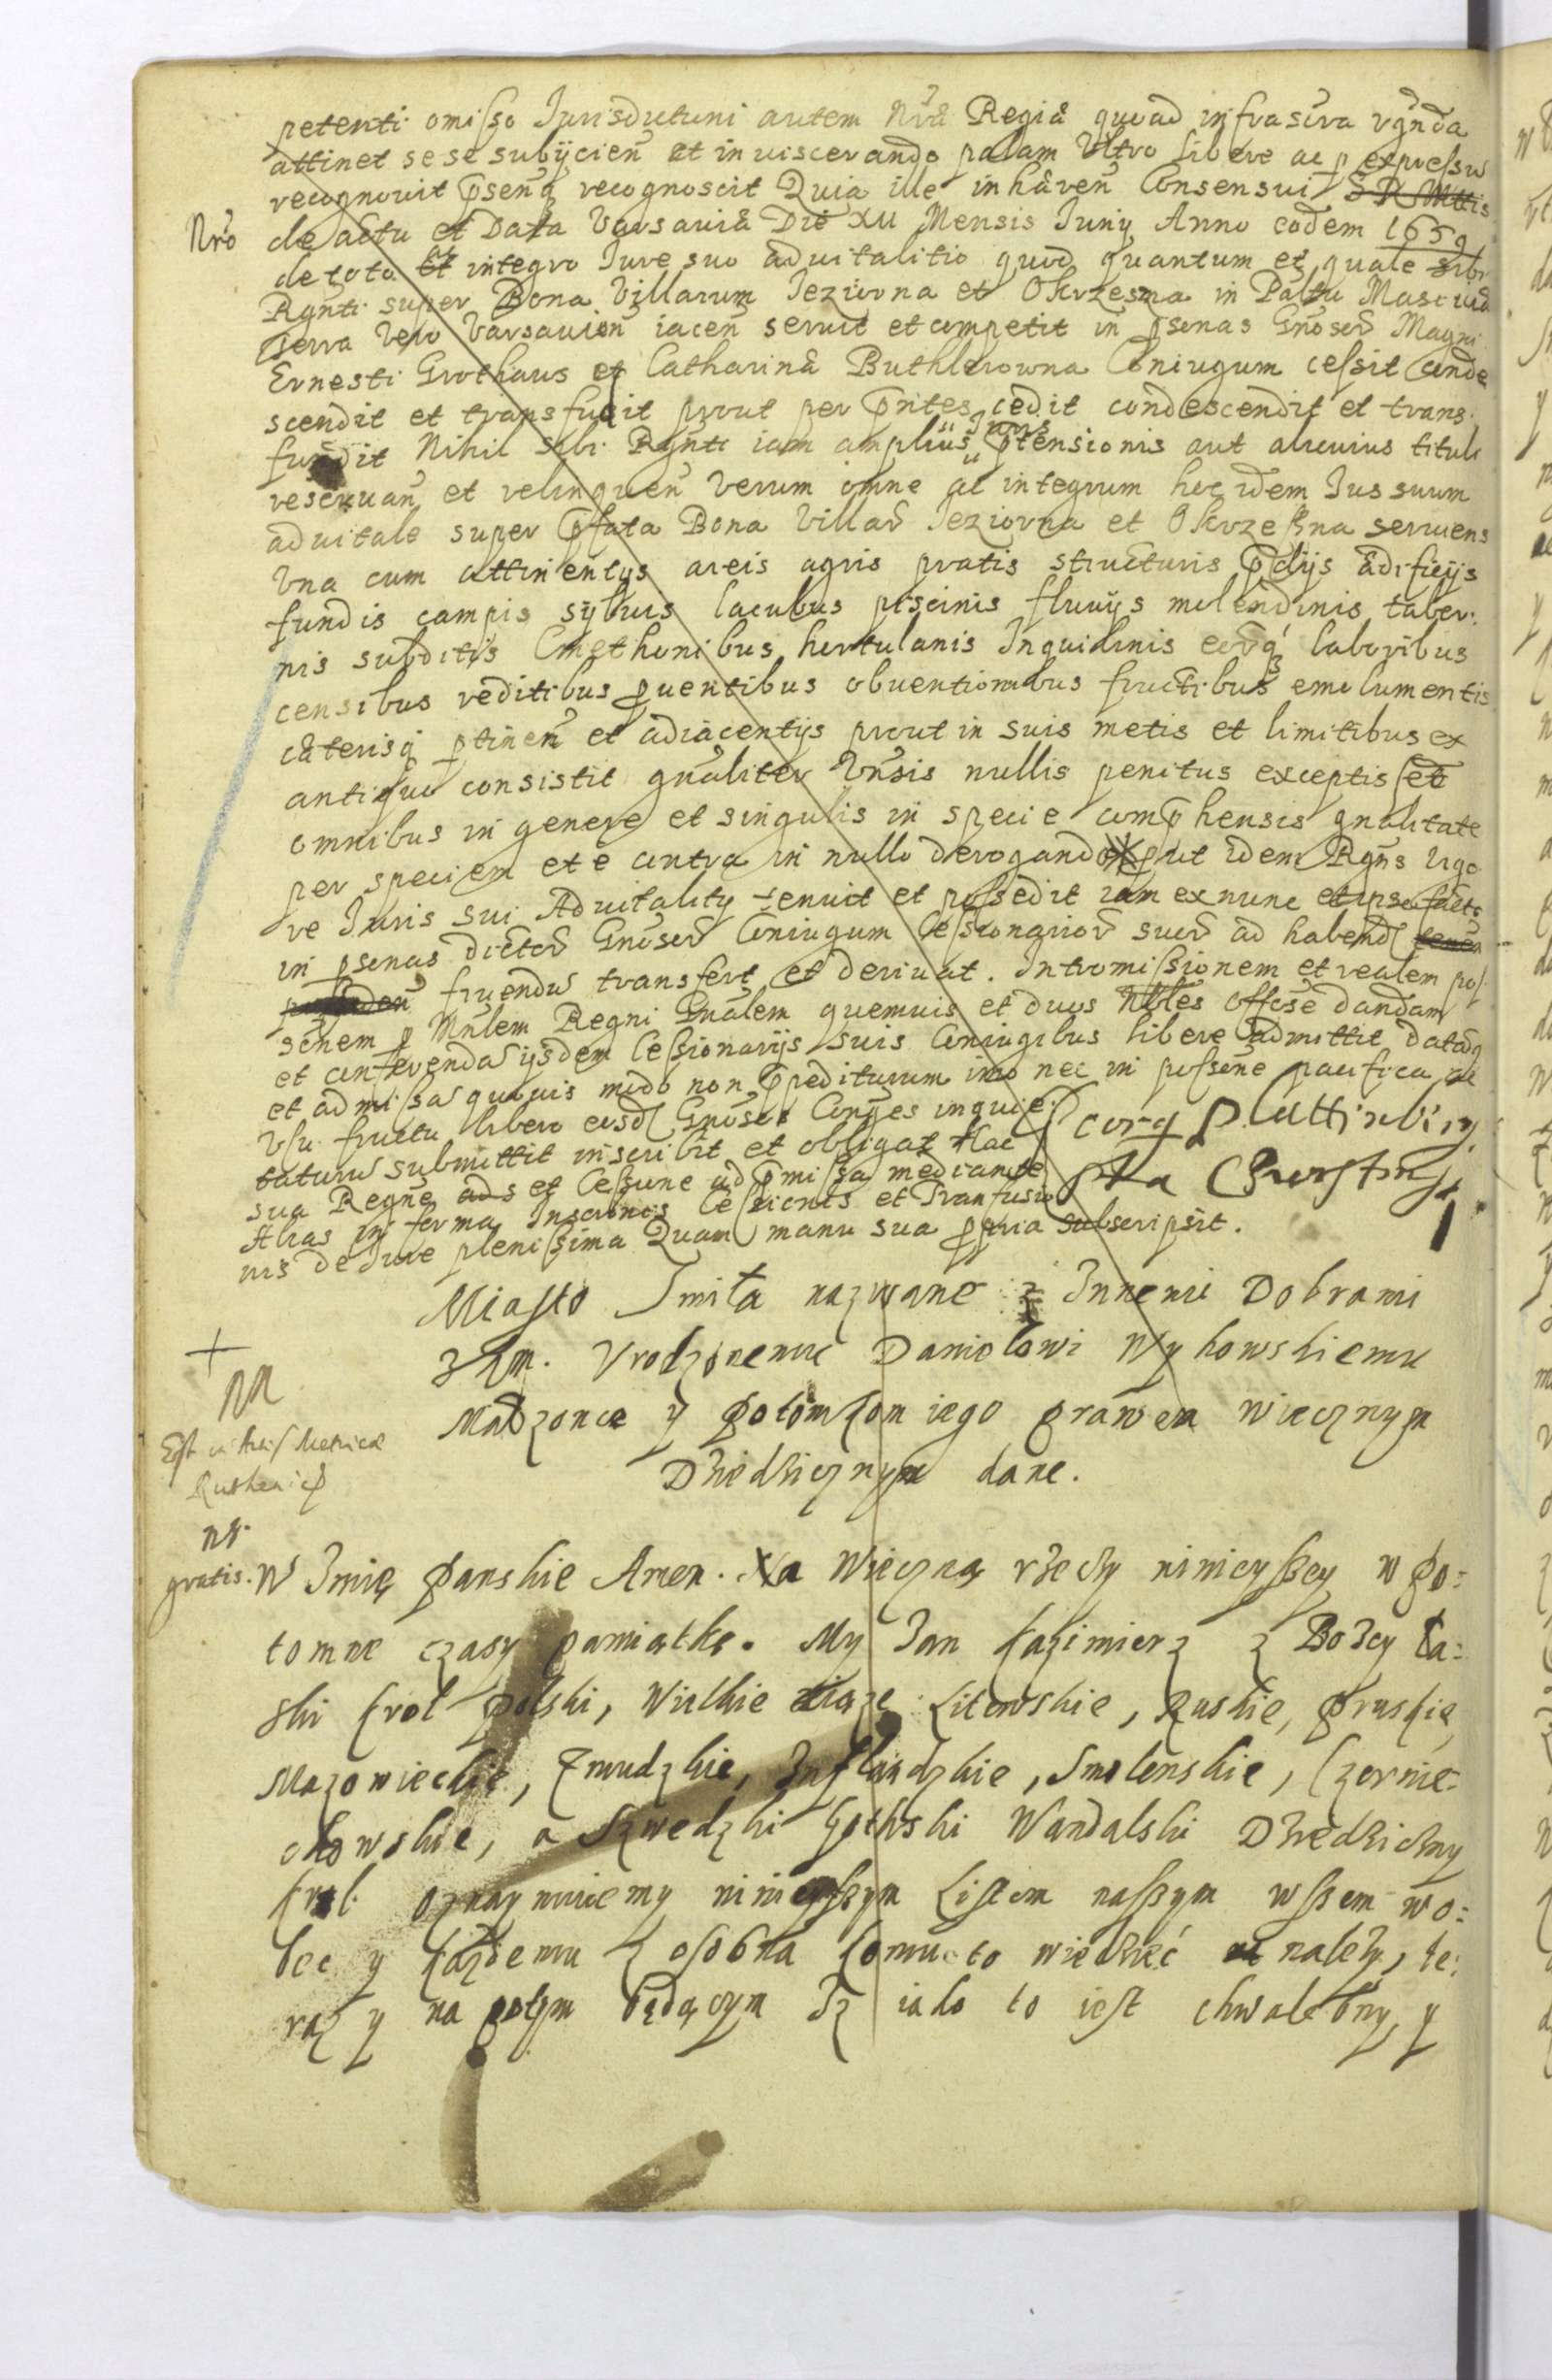 petenti omisso Jurisductuni autem Nrã Regiâ quoad infrascra rgnda
attinet se se subÿcieñ et inuiscerando palam Vltro libere ac p expressu
recognouit psenq recognoscit Quia ille inhæreñ Consensui S R Mttis
Nrõ
de actu et Data Varsauiâ Die XII Mensis Junÿ Anno eodem 1659
de toto Et integro Jure suo aduitalitio quod quantum et quale sibi
Rgnti super Bona Villarum Jeziorna et Okrzeszna in Paltu Masouiâ
Terra Vero Varsauieñ iaceñ seruit et competit in psonas Gnoser Magni
Ernesti Grothaus et Catharinâ Buthlerowna Coniugum cessit conde
scendit et transfudit prout per pntes cedit condescendit et trans
fundit Nihil sibi Rgnti iam amplius Juris ptensionis aut alicuius tituli
reseruañ et relinqueñ Verum omne ac integrum hoc idem Jus suum
aduitale super pfata Bona Villar Jeziorna et Okrzeszna seruiens
Vna cum attinentÿs areis agris pratis structuris pdÿs ædificÿs
fundis campis syluis lacubus piscinis fluuÿs molendinis taber:
nis subditis Cmethonibus hortulanis Inquilinis eorq laboribus
censibus reditibus puentibus obuentionibus fructibus emolumentis
cæterisq ptineñ et adiacentÿs prout in suis metis et limitibus ex
antiquo consistit gnaliter Vnsis nullis penitus exceptis sed
omnibus in genere et singulis in specie comphensis gnalitate
per speciem et e contra in nullo derogando put idem Rgns Vigo
re Juris sui Aduitalitÿ tenuit et possedit iam ex nunc et ipso facto
in psonas dictor Gnoser Coniugum Cessionarior suor ad habend teneñ
fruendu transfert et deriuat. Intromissionem et realem pos
sionem p Mnlem Regni Gnalem quemuis et duos Nbles Offose dandam
et conferendã ÿsdem Cessionarÿs suis Coniugibus libere admittit datãq
et admissã quouis modo non ppediturum imo nec in possione pacifica ac
Vsu fructu libero eosd Gnosos Conÿes inquie
taturu submittit inscribit et obligat Hac
sua Rcgne ads et Cessione ad pmissa mediante
Alias in forma Inscrionis Cessionis et Transfusio
nis de Jure plenissima Quam manu sua ppria subscripsit.
Miasto Smiła nazwane z Innemi Dobrami
Vrodzonemu Daniołowi Wyhowskiemu
Małzonce y potomkom iego prawem wiecznym
Dziedzicznym dane.
+
Est in Metrica
gratis.
W Imię Panskie Amen. Na Wieczną rzeczy ninieyszey w po:
tomne czasy pamiątkę. My Jan Kazimierz z Bozey Ła:
ski Krol Polski, Wielkie Xiąze Litewskie, Ruskie, Pruskie,
Mazowieckie, Zmudzkie, Inflandzkie, Smolenskie, Czernie:
chowskie, a Szwedzki Gothski Wandalski Dziedziczny
Krol. Oznaymuiemy ninieyszym Listem naszym wszem wo:
bec y kazdemu z osobna komu to wiedzieć nalezy, te:
raz y na potym będącym Iz iako to iest chwalebny, y